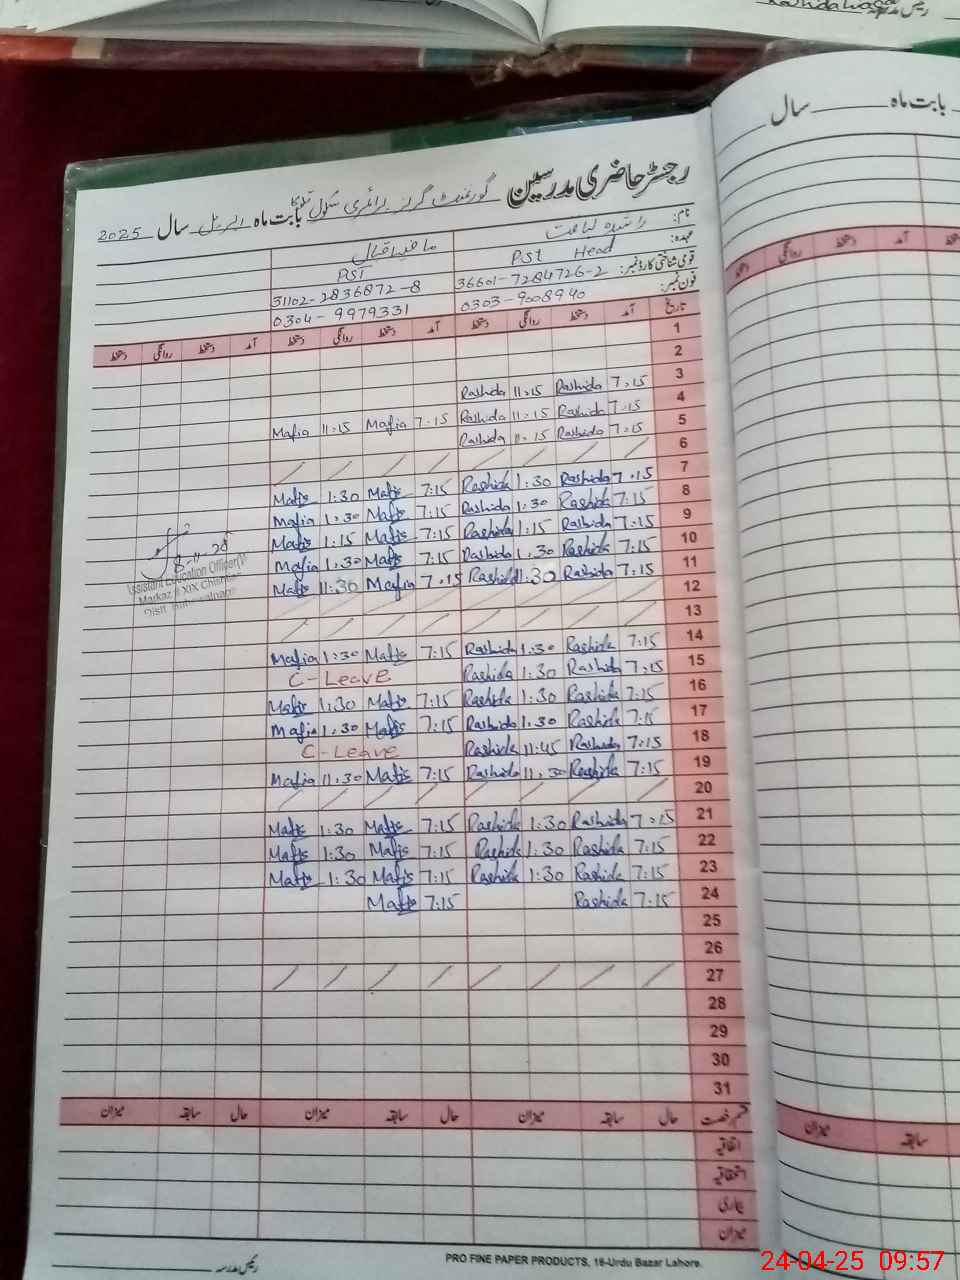 رئیس مدرسہ
سال
بابت ماہ
رجسٹر حاضری مدرسین گورنمنٹ گرلز پرائمری سکول بابت ماہ اپریل سال 2025
نام: راشدہ لیاقت
عہدہ: PST Head PST
قومی شناختی کارڈ نمبر: 36601-7284726-2 31102-2836872-8
فون نمبر: 0303-9008940 0304-9979331
تاریخ آمد دستخط روانگی دستخط آمد دستخط روانگی دستخط آمد دستخط روانگی دستخط
1
2
3 7.15 Rashida 11.15 Rashida
4 7.15 Rashida 11.15 Rashida 7.15 Mafia 11.15 Mafia
5 7.15 Rashida 11.15 Rashida
6
7 7.15 Rashida 1:30 Rashida 7:15 Mafia 1:30 Mafia
8 7:15 Rashida 1:30 Rashida 7:15 Mafia 1:30 Mafia
9 7:15 Rashida 1:15 Rashida 7:15 Mafia 1:15 Mafia
10 7:15 Rashida 1:30 Rashida 7:15 Mafia 1:30 Mafia
11 7:15 Rashida 11:30 Rashida 7.15 Mafia 11:30 Mafia
Assistant Education Officer
Markaz
12
13
14 7:15 Rashida 1:30 Rashida 7:15 Mafia 1:30 Mafia
15 7:15 Rashida 1:30 Rashida C-Leave
16 7:15 Rashida 1:30 Rashida 7:15 Mafia 1:30 Mafia
17 7:15 Rashida 1:30 Rashida 7:15 Mafia 1:30 Mafia
18 7:15 Rashida 11:45 Rashida C-Leave
19 7:15 Rashida 11:30 Rashida 7:15 Mafia 11:30 Mafia
20
21 7:15 Rashida 1:30 Rashida 7:15 Mafia 1:30 Mafia
22 7:15 Rashida 1:30 Rashida 7:15 Mafia 1:30 Mafia
23 7:15 Rashida 1:30 Rashida 7:15 Mafia 1:30 Mafia
24 7:15 Rashida 7:15 Mafia
25
26
27
28
29
30
31
قسم رخصت حال سابقہ میزان حال سابقہ میزان حال سابقہ میزان
اتفاقیہ
استحقاقیہ
بیماری
میزان
رئیس مدرسہ
PRO FINE PAPER PRODUCTS, 16-Urdu Bazar Lahore.
دستخط آمد دستخط روانگی دستخط
سابقہ میزان
24-04-25 09:57